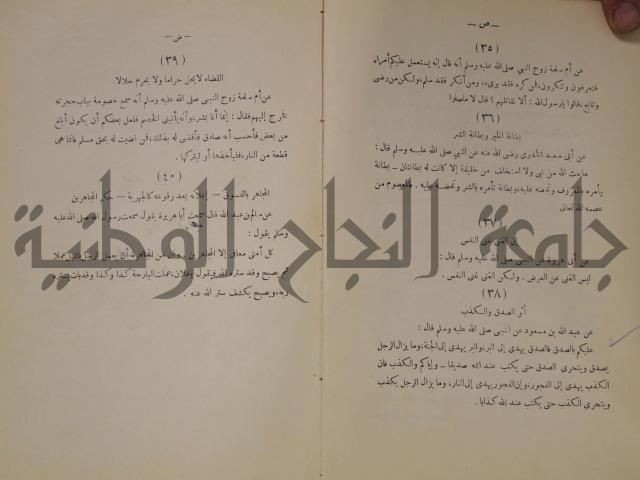 — ص —
(٣٥)
عن أم سلمة زوج النبي صلى الله عليه وسلم أنه قال إنه يستعمل عليكم أمراء
فتعرفون وتنكرون، فمن كره فقد برىء، ومن أنكر فقد سلم، ولكن من رضى
وتابع، قالوا يارسول الله : ألا نقاتلهم ؟ قال لا ماصلوا
(٣٦)
بطانة الخير وبطانة الشر
عن أبى سعيد الخدرى رضى الله عنه عن النبي صلى الله عليه وسلم قال :
مابعث الله من نبى ولا استخلف من خليفة إلا كانت له بطانتان – بطانة
تأمره بالمعروف وتحضه عليه، وبطانة تأمره بالشر وتحضه عليه . فالمعصوم من
عصمه الله تعالى
(٣٧)
الغنى غنى النفس
عن أبى هريرة عن النبى صلى الله عليه وسلم قال :
ليس الغنى عن العرض . ولكن الغنى غنى النفس .
(٣٨)
أثر الصدق والكذب
عن عبد الله بن مسعود عن النبى صلى الله عليه وسلم قال :
عليكم بالصدق فالصدق يهدى إلى البر، والبر يهدى إلى الجنة، وما يزال الرجل
يصدق ويتحرى الصدق حتى يكتب عند الله صديقا – وإياكم والكذب فان
الكذب يهدى إلى الفجور، وإن الفجور يهدى إلى النار، وما يزال الرجل يكذب
ويتحرى الكذب حتى يكتب عند الله كذابا .
— ض —
(٣٩)
القضاء لايحل حراما ولا يحرم حلالا
عن أم سلمة زوج النبى صلى الله عليه وسلم أنه سمع خصومة بباب حجرته
فخرج إليهم فقال : إنما أنا بشر، وأنه يأتينى الخصم فلعل بعضكم أن يكون أبلغ
من بعض فأحسب أنه صادق فأقضى له بذلك، فمن قضيت له بحق مسلم فانما هى
قطعة من النار، فليأخذها أو ليتركها .
(٤٠)
المجاهر بالفسوق – إعلانه بعد وقوعه كالجهر به – حكم المجاهرين
عن سالم بن عبد الله قال سمعت أباهريرة يقول سمعت رسول الله صلى الله عليه
وسلم يقول :
كل أمتى معافى إلا المجاهرين، وإن من المجاهرة أن يعمل الرجل بالليل عملا
ثم يصبح وقد ستره الله فيقول يافلان، عملت البارحة كذا وكذا وقد بات يستره
ربه، ويصبح يكشف ستر الله عنه .
جامعة النجاح الوطنية